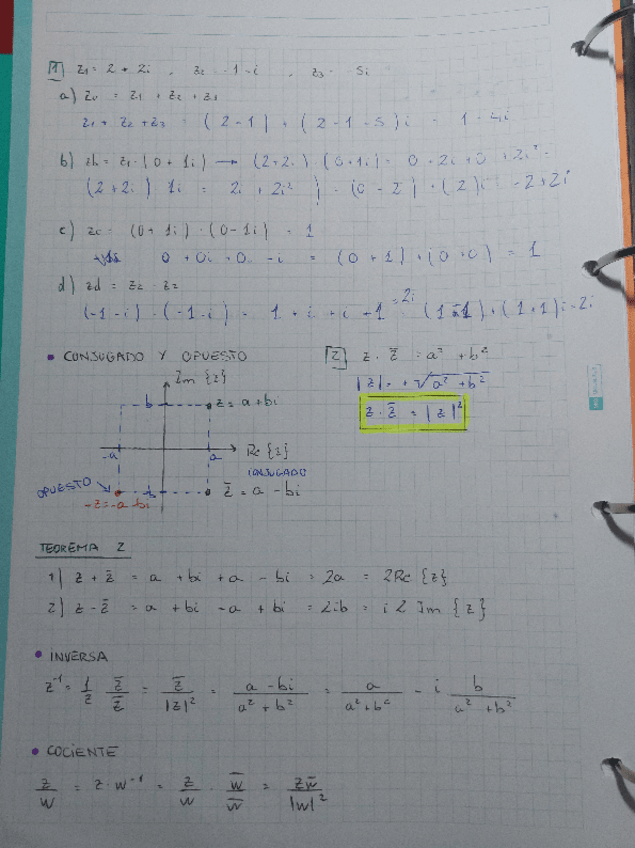 1 z₁ = 2 + 2i , z₂ = -1 - i , z₃ = -5i
a) z₀ = z₁ + z₂ + z₃
z₁ + z₂ + z₃ = (2-1) + (2-1-5)i = 1 - 4i
b) zb = z₁ · (0 + 1i) → (2+2i) · (0+1i) = 0 + 2i + 0 + 2i² =
(2+2i) 1i = 2i + 2i² ) = (0-2) + (2)i = -2+2i
c) zc = (0 + 1i) · (0-1i) = 1
0 + 0i + 0 - i = (0+1) + (0+0) = 1
d) zd = z₂ · z₂
(-1-i) · (-1-i) = 1 + i + i + 1 = 2i (1-1) + (1+1)i = 2i
• CONJUGADO Y OPUESTO
2 z · z̄ = a² + b²
|z| = +√a² + b²
z · z̄ = |z|²
Im {z}
b z = a + bi
-a a Re {z}
CONJUGADO
OPUESTO -b z̄ = a - bi
-z = -a -bi
TEOREMA 2
1) z + z̄ = a + bi + a - bi = 2a = 2Re {z}
2) z - z̄ = a + bi - a + bi = 2ib = i 2 Im {z}
• INVERSA
z⁻¹ = 1/z z̄/z̄ = z̄/|z|² = a - bi/a² + b² = a/a² + b² - i b/a² + b²
• COCIENTE
z/w = z · w⁻¹ = z/w · w̄/w̄ = zw̄/|w|²